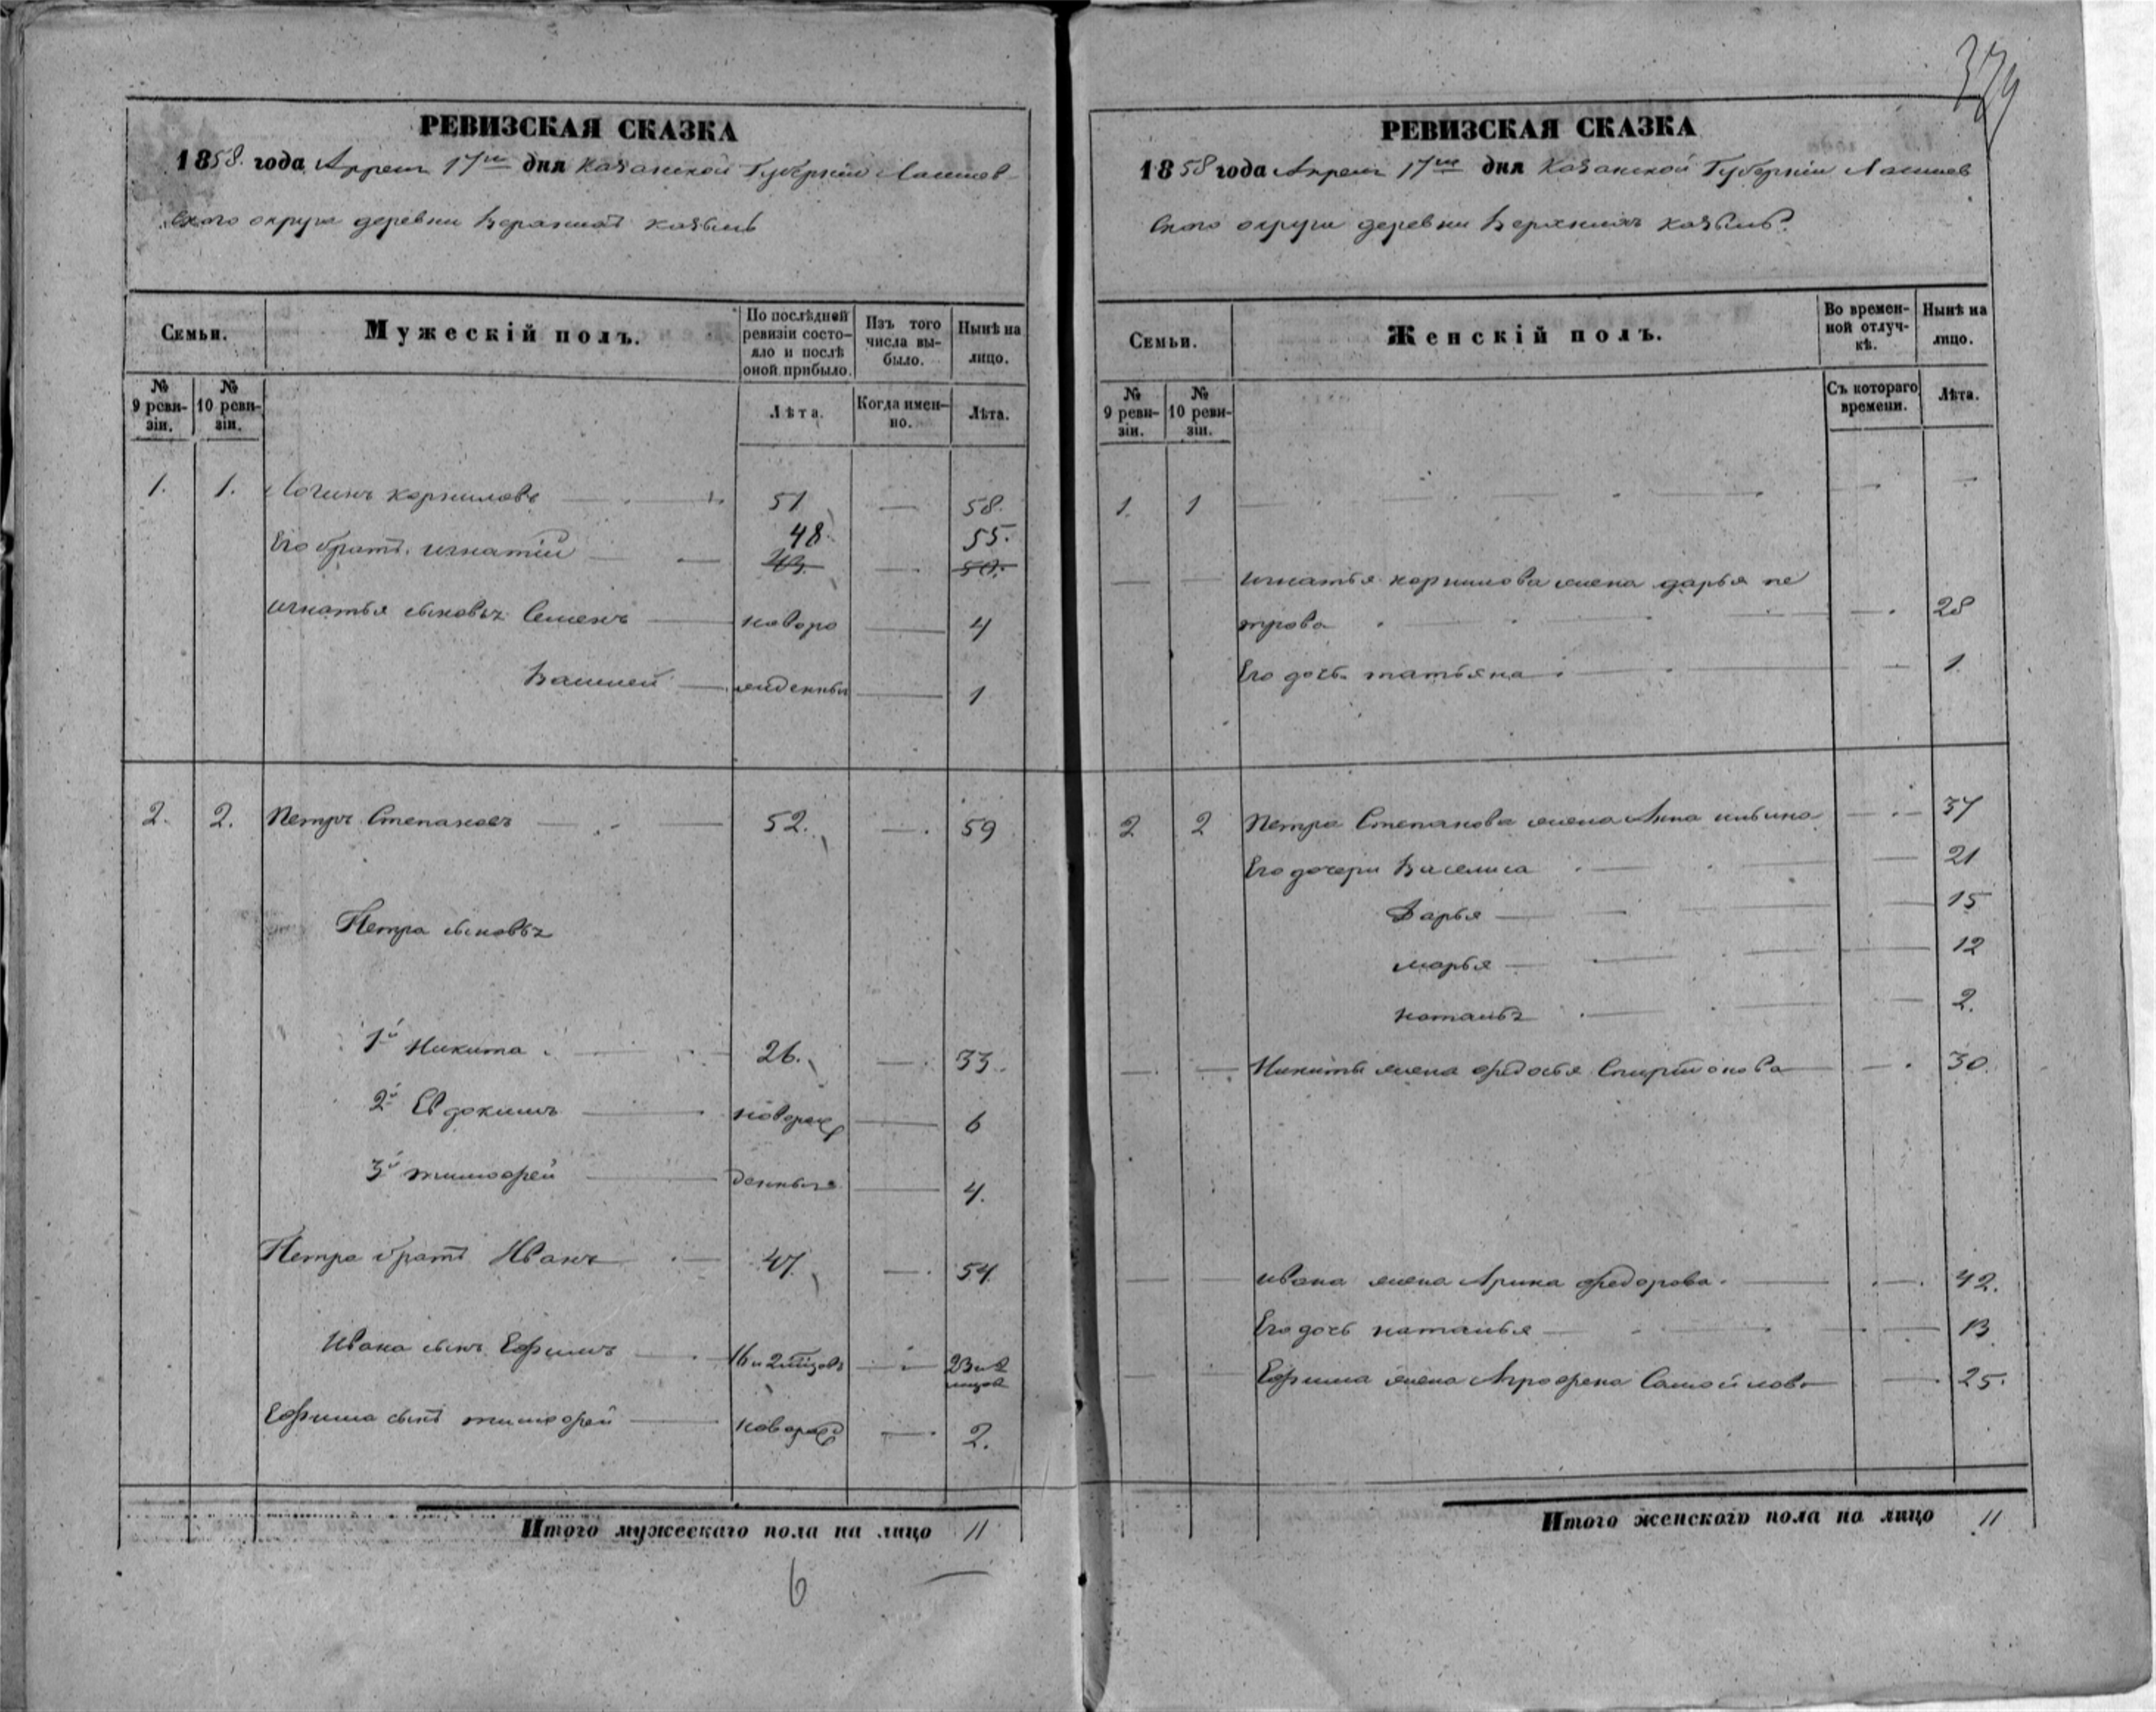 379
РЕВИЗСКАЯ СКАЗКА
1858. года Апреля 17го дня Казанской Губернии Лаишев
скаго округа деревни Верхнихъ
Семьи.
Мужескій полъ.
По послѣдней ревизіи состояло и послѣ оной прибыло.
Изъ того числа выбыло.
Нынѣ на лицо.
№ 9 ревизіи.
№ 10 ревизіи.
Лѣта.
Когда именно.
Лѣта.
1. 1. Логинъ Корнилова 51 58.
Его братъ Игнатій 48. 55.
43. 50.
Игнатья сыновья Семенъ новоро 4
Василей жденныи 1
2. 2. Петръ Степановъ 52. 59
Петра сыновья
1й Никита 26. 33.
2й Евдокимъ новорож 6
3й Тимофей денныя 4.
Петра братъ Иванъ 47. 54
Ивана сынъ Ефимъ 16 и 23 и
Ефима сынъ Тимофей новорож 2.
Итого мужескаго пола на лицо 11
6
РЕВИЗСКАЯ СКАЗКА
1858 года Апреля 17го дня Казанской Губернии Лаишев
скаго округи деревни Верхнихъ
Семьи.
Женскій полъ.
Во временной отлучкѣ.
Нынѣ на лицо.
№ 9 ревизіи.
№ 10 ревизіи.
Съ котораго времени.
Лѣта.
1. 1
Игнатья Корнилова жена Дарья Пе
трова 28
Его дочь Татьяна 1.
2 2 Петра Степанова жена Анна Ильина 37
Его дочери Василиса 21
Дарья 15
Марья 12
Наталья 2.
Никиты жена Федосья Спиридонова 30.
Ивана жена Арина Федорова. 42.
Его дочь Наталья 13
Ефима жена Агрофена Самойлова 25.
Итого женского пола на лицо 11